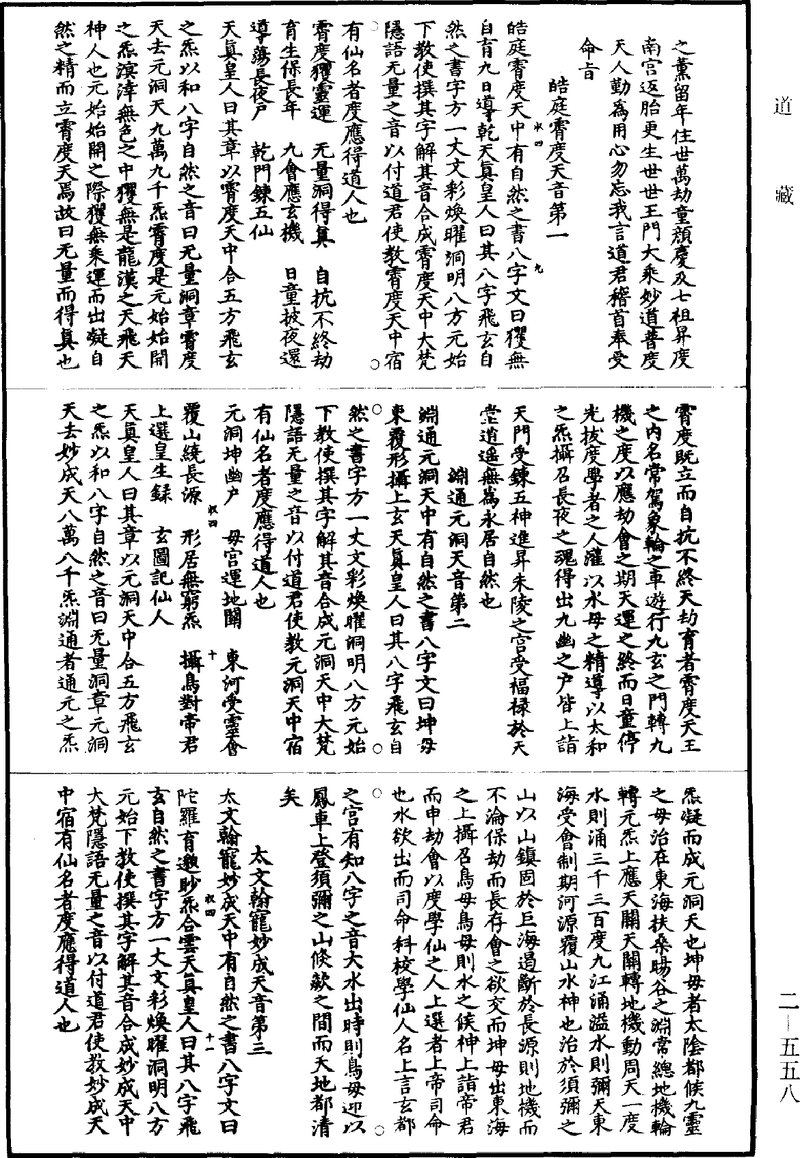 道藏
之薰留年住世萬劫童顏慶及七祖昇度
南宮返胎更生世世王門大乘妙道普度
天人勤為用心勿忘我言道君稽首奉受
命旨
皓庭霄度天音第一
皓庭霄度天中有自然之書八字文曰玃無
自育九日導乾天真皇人曰其八字飛玄自
然之書字方一丈文彩煥曜洞明八方元始
下教使撰其字解其音合成霄度天中大梵
隱語无量之音以付道君使教霄度天中宿
有仙名者度應得道人也
霄度玃靈運 无量洞得真 自抗不終劫
育生保長年 九會應玄機 日童披夜還
導蕩長夜戶 乾門鍊五仙
天真皇人曰其章以霄度天中合五方飛玄
之炁以和八字自然之音曰无量洞章霄度
天去元洞天九萬九千炁霄度是元始始開
之炁濵涬無色之中玃無是龍漢之天飛天
神人也元始始開之際玃無乘運而出凝自
然之精而立霄度天焉故曰无量而得真也
霄度既立而自抗不終天劫育者霄度天王
之內名常駕象輪之車遊行九玄之門轉九
機之度以應劫會之期天運之終而日童停
光拔度學者之人灌以水母之精導以太和
之炁攝召長夜之魂得出九幽之戶皆上詣
天門受鍊五神進昇朱陵之宮受福祿於天
堂逍遥無為永居自然也
淵通元洞天音第二
淵通元洞天中有自然之書八字文曰坤母
東覆形攝上玄天真皇人曰其八字飛玄自
然之書字方一丈文彩煥曜洞明八方元始
下教使撰其字解其音合成元洞天中大梵
隱語無量之音以付道君使教元洞天中宿
有仙名者度應得道人也
元洞坤幽戶 母宮運地關 東河受靈會
覆山繞長源 形居無窮炁 攝鳥對帝君
上選皇生録 玄圖記仙人
天真皇人曰其章以元洞天中合五方飛玄
之炁以和八字自然之音曰无量洞章元洞
天去妙成天八萬八千炁淵通者通元之炁
炁凝而成元洞天也坤母者太陰都候九靈
之母治在東海扶桑暘谷之淵常總地機輪
轉元炁上應天關天關轉地機動周天一度
水則涌三千三百度九江涌溢水則彌天東
海受會制期河源覆山水神也治於須彌之
山以山鎮固於巨海遏斷於長源則地機而
不淪保劫而長存會之欲交而坤母出東海
之上攝召鳥母鳥母則水之候神上詣帝君
而申劫會以度學仙之人上選者上帝司命
也水欲出而司命科校學仙人名上言玄都
之宮有知八字之音大水出時則鳥母迎以
鳳車上登須彌之山倏歘之間而天地都清
矣
太文翰寵妙成天音第三
太文翰寵妙成天中有自然之書八字文曰
陀羅育邈眇炁合雲天真皇人曰其八字飛
玄自然之書字方一丈文彩煥曜洞明八方
元始下教使撰其字解其音合成妙成天中
大梵隱語无量之音以付道君使教妙成天
中宿有仙名者度應得道人也
二—五五八